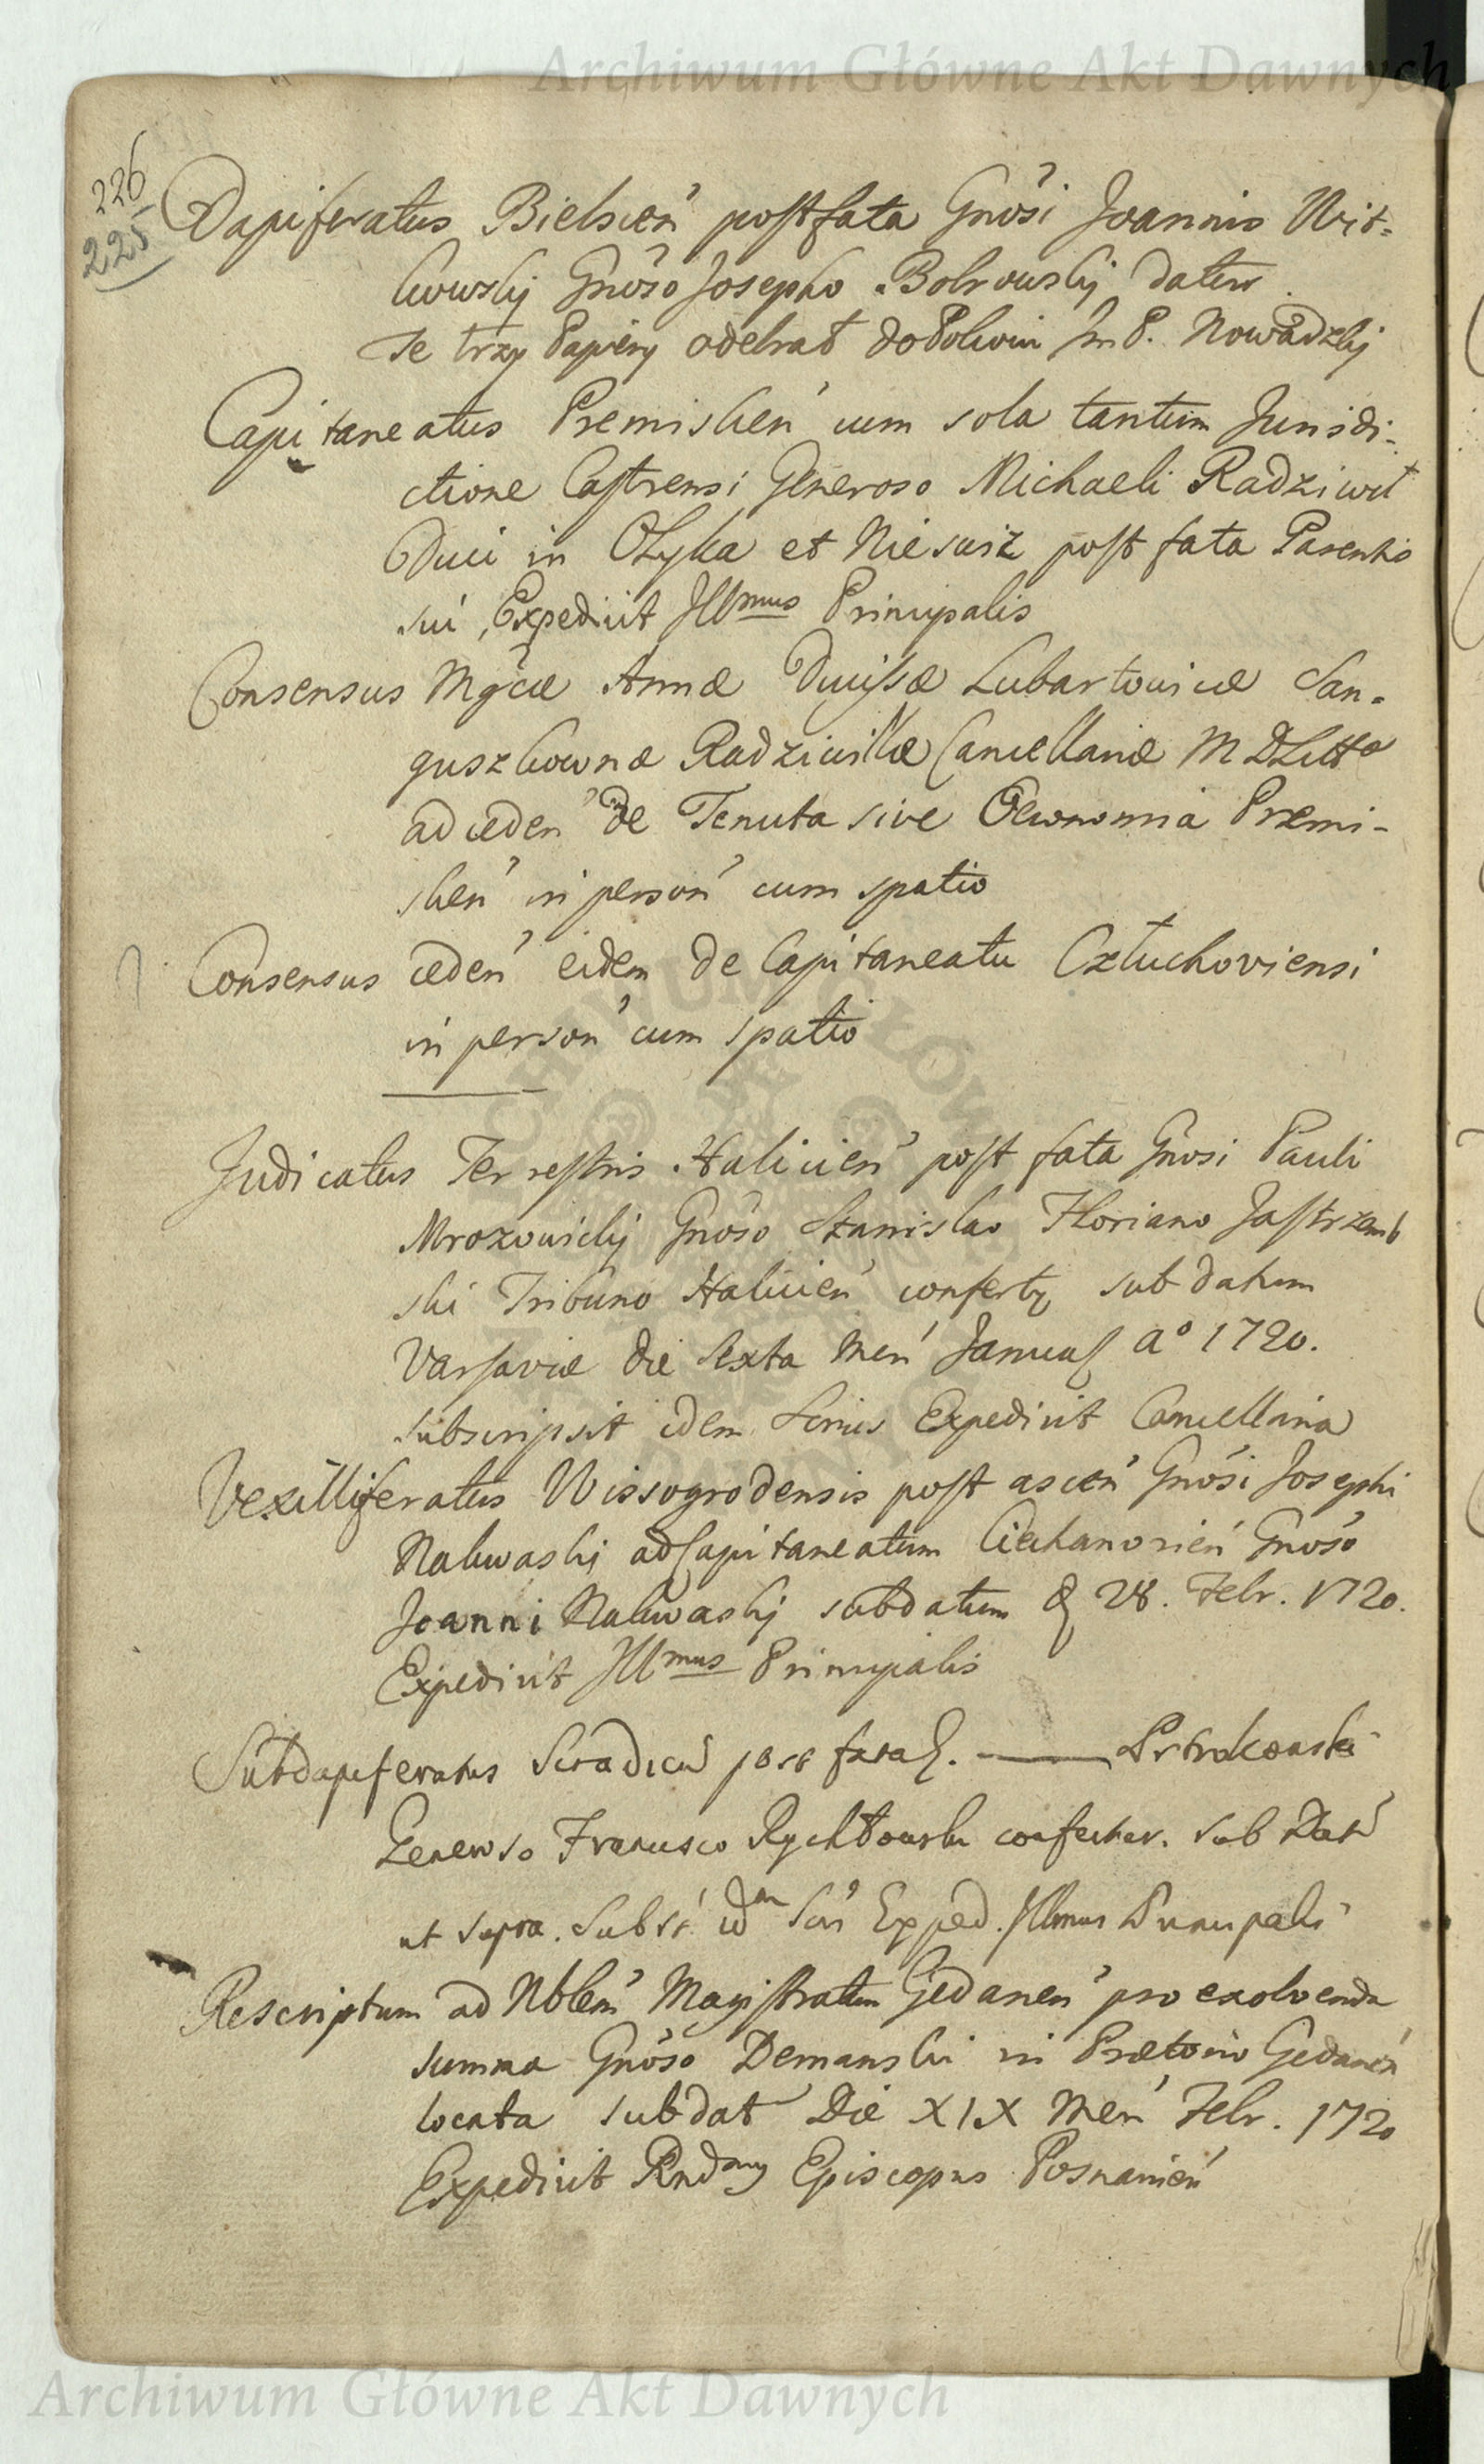 Archiwum Główne Akt Dawnych
226
225
Dapiferatus Bielscen̄ post fata Gnosi Joannis Wit-
kowskij Gnoso Josepho Bobrowskij datur.
Te trzy Papiery odebrał do Pokoiu Im P. Nowadzkij
Capitaneatus Premislien̄ cum sola tantum Jurisdi-
ctione Castrensi Generoso Michaeli Radziwił
Duci in Ołyka et Nieswiz post fata Parentis
sui, Expedivit Illmus Principalis
Consensus Mgcæ Annæ Ducissæ Lubartovicæ San-
guszkownæ Radziwillæ Cancellariæ M D Litt̄æ
ad ceden̄ de Tenuta sive Oeconomia Præmi-
slien̄ in person̄ cum spatio
Consensus ceden̄ eidem de Capitaneatu Człuchoviensi
in person̄ cum spatio
Judicatus Terrestris Halicien̄ post fata Gnosi Pauli
Mrozowickij Gnoso Stanislao Floriano Jastrzemb
ski Tribuno Halicien̄ confertꝫ sub datum
Varsaviæ die Sexta Men̄ Januaꝭ Aº 1720.
Subscripsit idem Serius Expedivit Cancellaria
Vexilliferatus Wissogrodensis post ascen̄ Gnosi Josephi
Nakwaskij ad Capitaneatum Ciechanovien̄ Gnoso
Joanni Nakwaskij sub datum 28. Febr. 1720.
Expedivit Illmus Principalis
Subdapiferatus Siradien̄ post fata G. ——
Generoso Francisco Rychłowski confertur. Sub Dat̄
ut supra. Subst̄ idm Scris̄ Exped. Illmus Principalis
Rescriptum ad Noblem̄ Magistratum Gedanen̄ pro exolvenda
summa Gnoso Demanski in Prætorio Gedanen̄
locata sub dat Die XIX Men̄ Febr. 1720
Expedivit Rndmus Episcopus Posnanien̄
Archiwum Główne Akt Dawnych